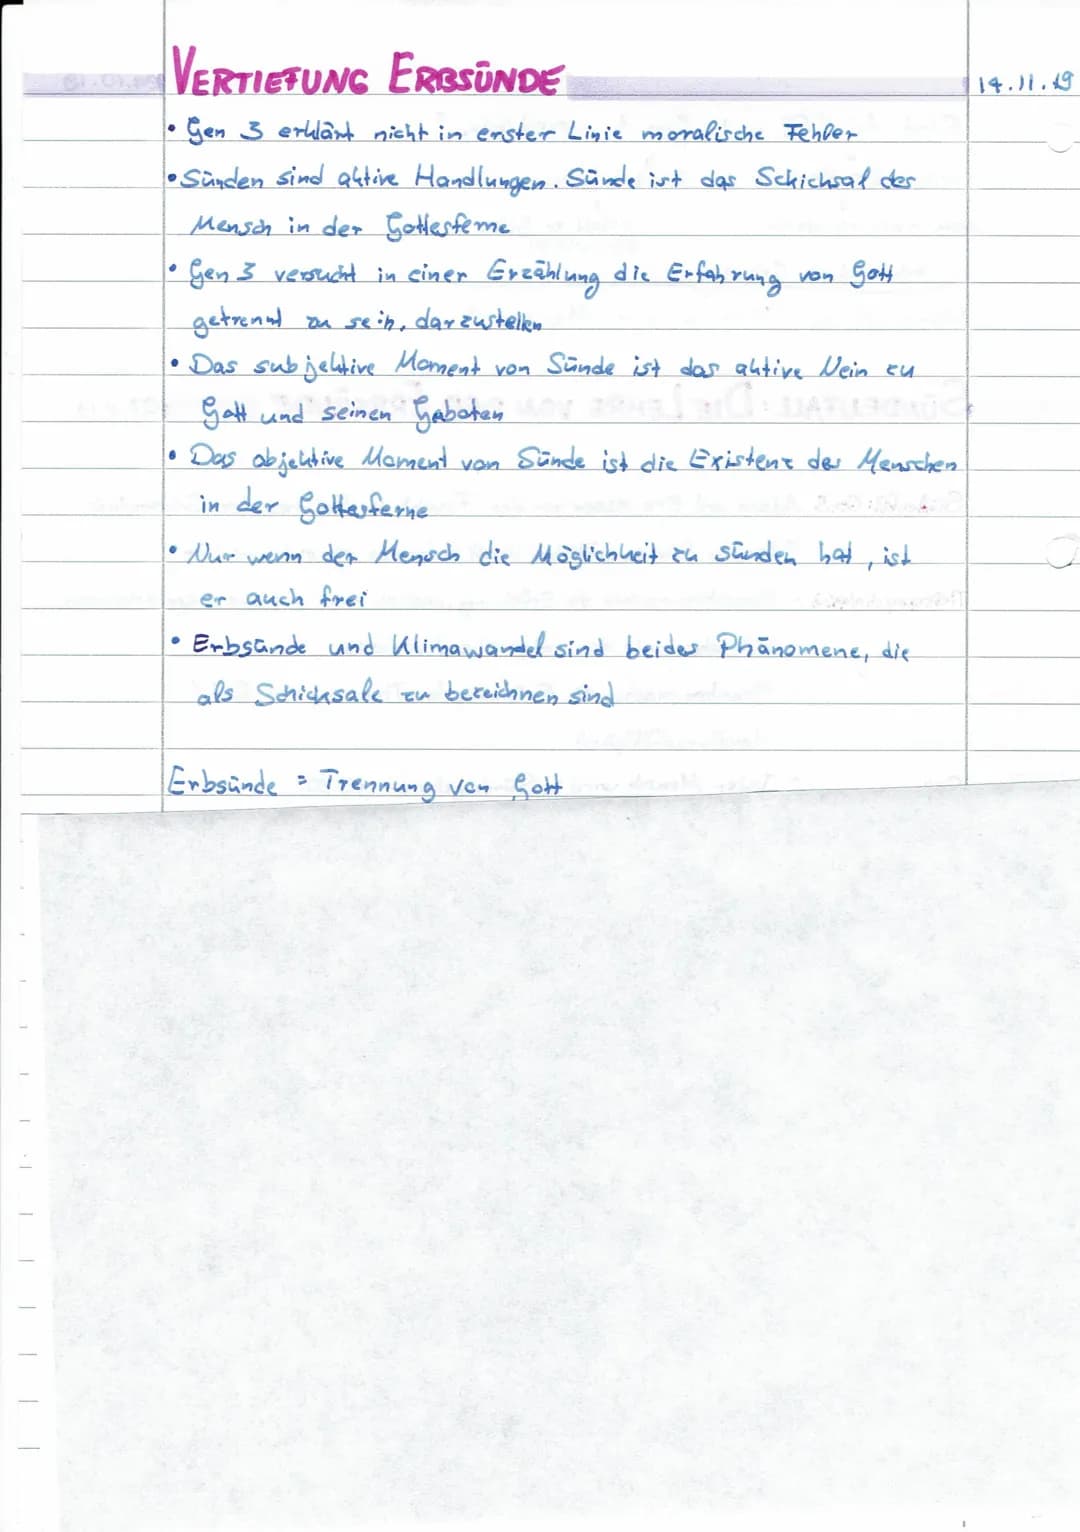 VERTIEFUNG ERBSÜNDE
14.11.19
• Gen 3 erklärt nicht in erster Linie moralische Fehler
• Sünden sind aktive Handlungen. Sünde ist das Schicksal des
Mensch in der Gottesferne
• Gen 3 versucht in einer Erzählung die Erfahrung von Gott
getrennt zu sein, darzustellen
• Das subjektive Moment von Sünde ist das aktive Nein zu
Gott und seinen Geboten
• Das objektive Moment von Sünde ist die Existenz des Menschen
in der Gottesferne
• Nur wenn der Mensch die Möglichkeit zu sünden hat, ist
er auch frei
• Erbsünde und Klimawandel sind beides Phänomene, die
als Schicksale zu bezeichnen sind
Erbsünde = Trennung von Gott